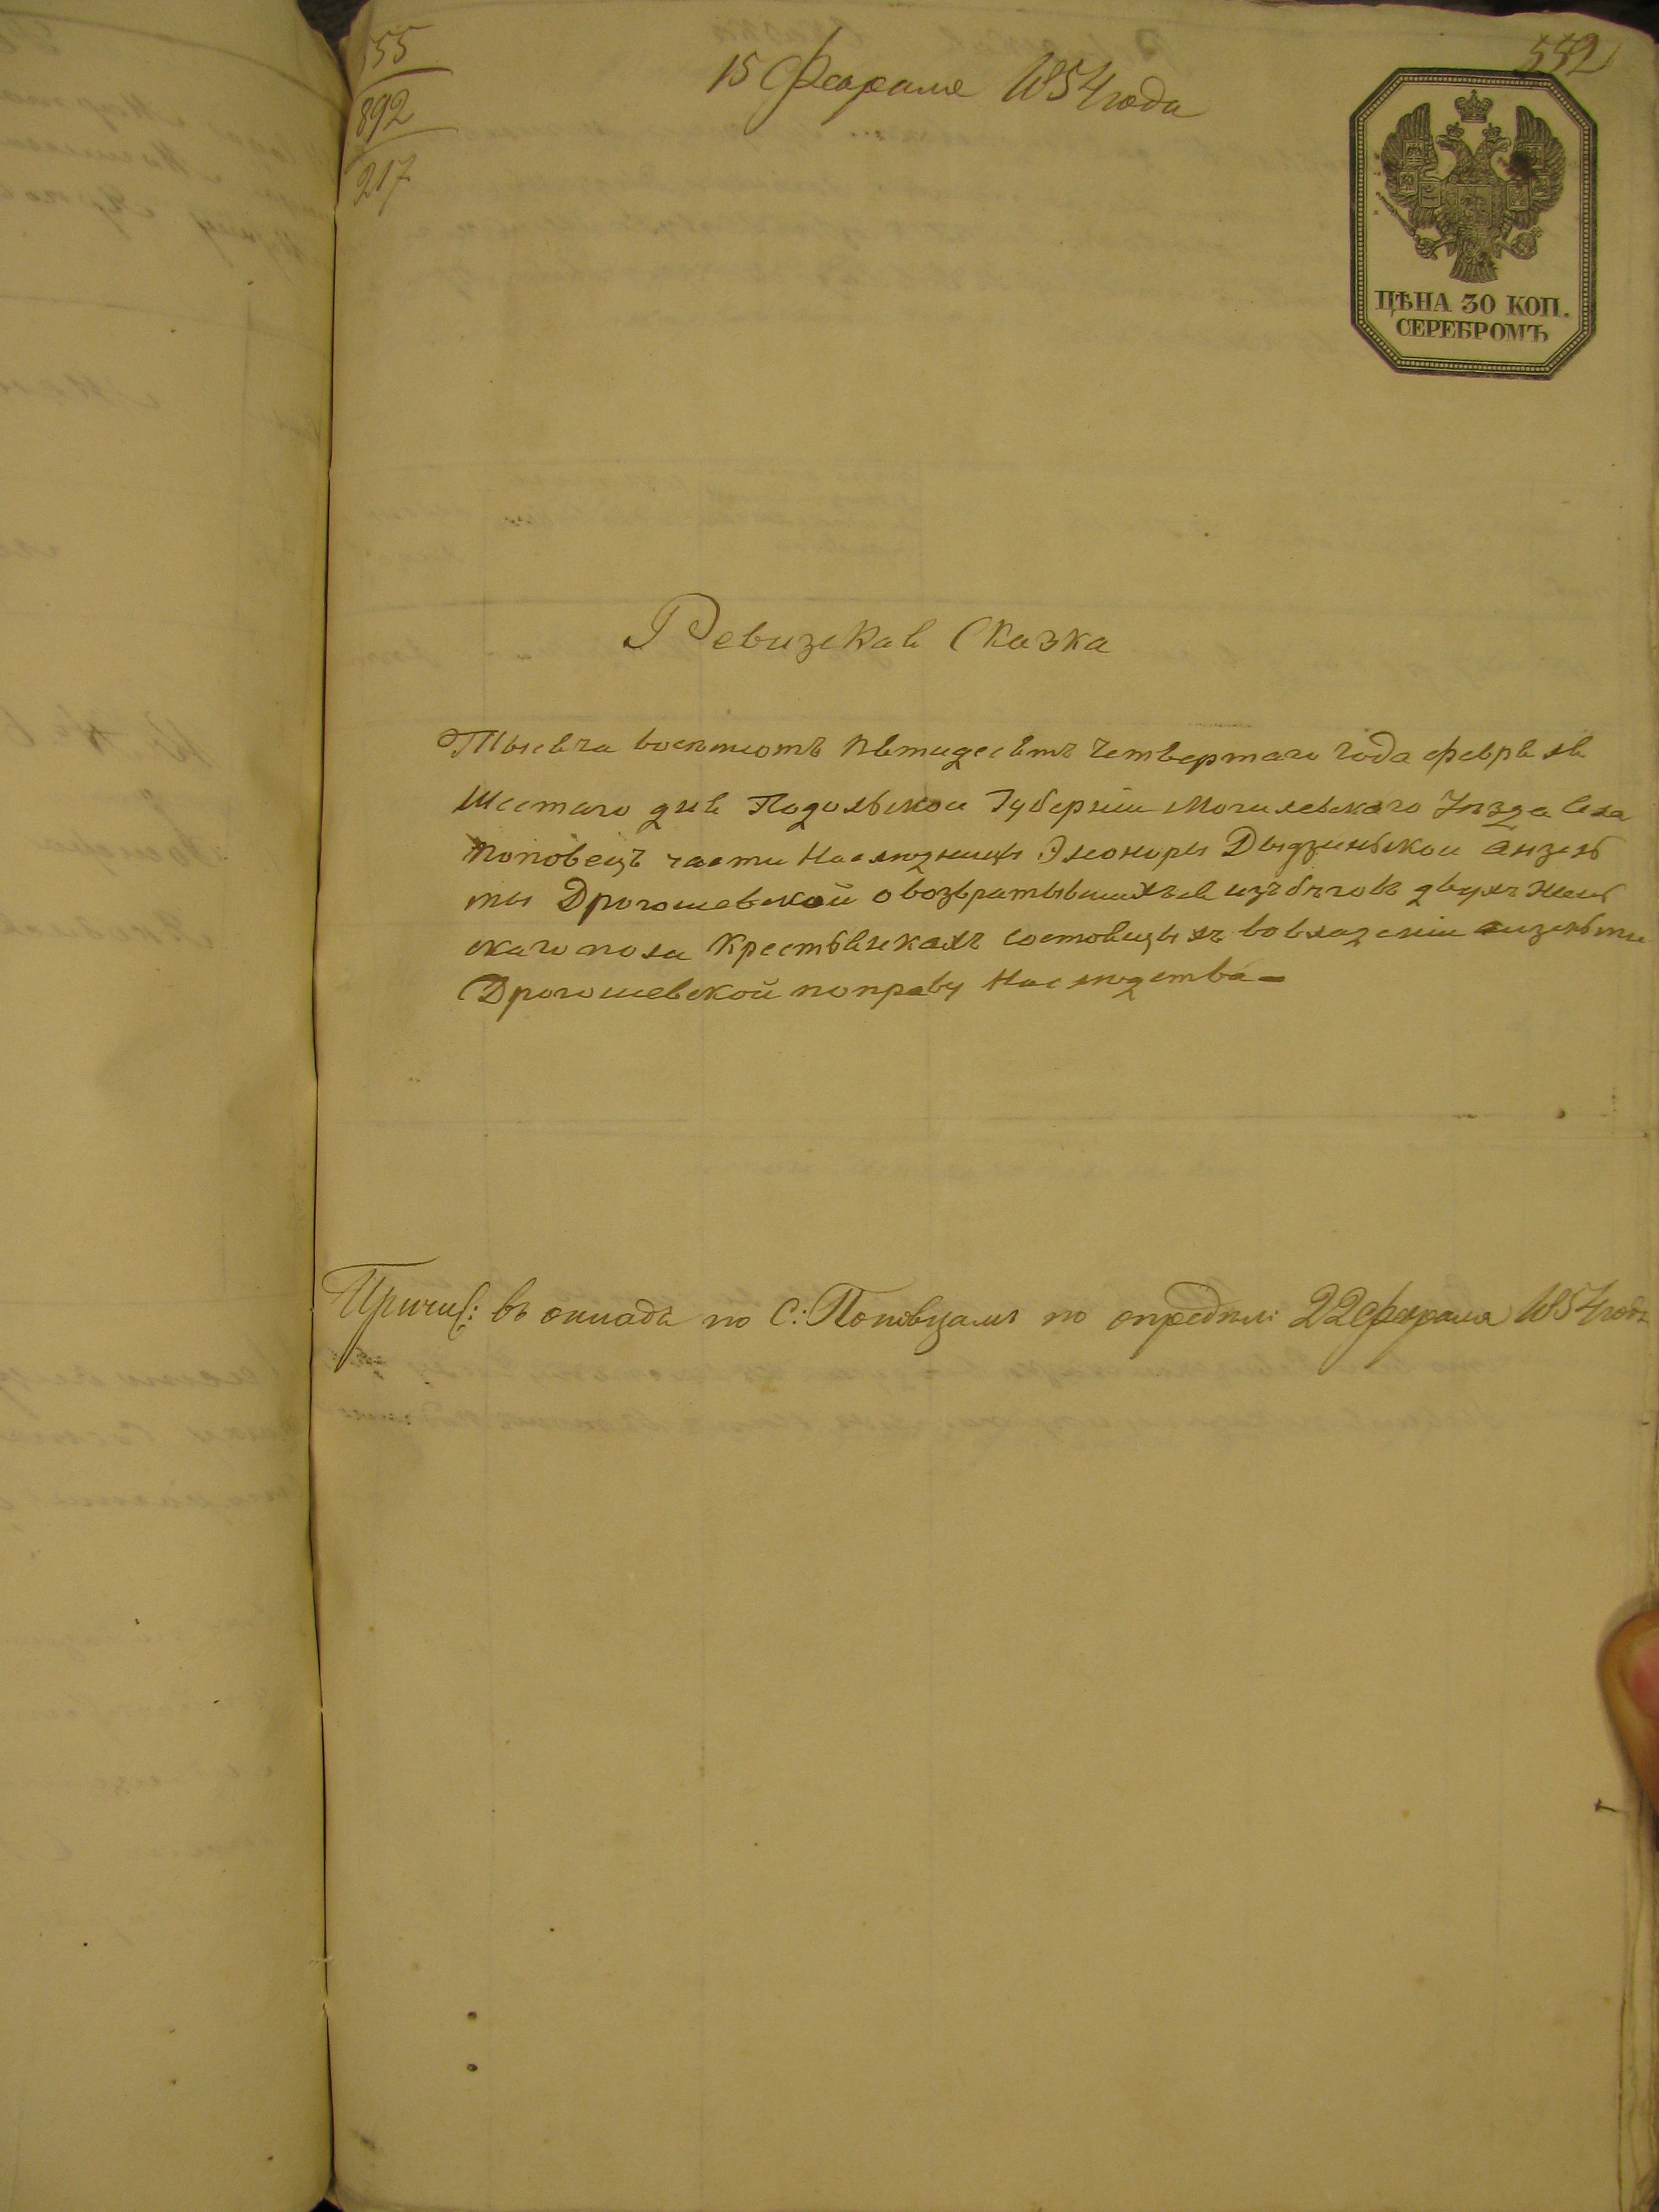 55
892
217
552
15 Февраля 1854 года
ЦѢНА 30 КОП.
СЕРЕБРОМЪ
Ревизская Сказка
Тысяча восемьсотъ пятидесятъ четвертаго года февраля
Шестаго дня Подольской Губерніи Могилевскаго Уѣзда села
Поповецъ части Наслюдницы Элеоноры Дыдзинской Анзель
мы Дрогошевской о возвратывшихъся изъ бѣговъ двухъ жень
скаго пола крестьянкахъ состовщыхъ во владеніи анзельмы
Дрогошевской по праву Наслюдства
Причис: въ окладъ по С: Поповцамъ по опредѣл: 22 февраля 1854 года